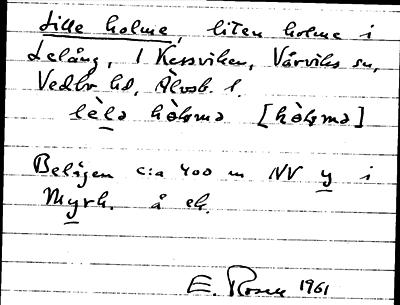 Lille holme, liten holme i
Lelång, i Kessviken, Vårviks sn,
Vedbo hd, Älvsb. l.
lèlə hòlmə [hòlmə]
Belägen c:a 400 m NV y i
Myrh. å ek.
E. Rosen 1961